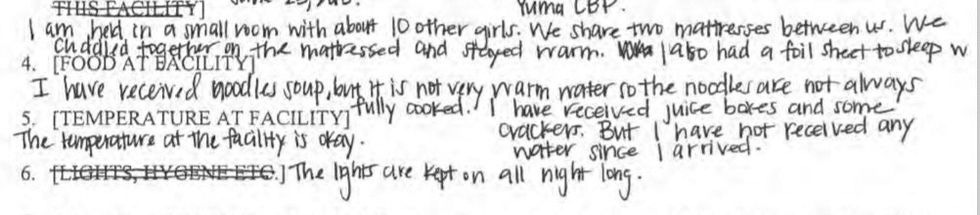 THIS FACILITY] Yuma CBP.
I am held in a small room with about 10 other girls. We share two mattresses between us. We
cuddled together on the mattressed and stayed warm. I also had a foil sheet to sleep w
4. [FOOD AT FACILITY]
I have received noodles soup, but it is not very warm water so the noodles are not always
fully cooked. I have received juice boxes and some
5. [TEMPERATURE AT FACILITY]
crackers. But I have not received any
The temperature at the facility is okay.
water since I arrived.
6. [LIGHTS, HYGENE ETC.] The lghts are kept on all night long.